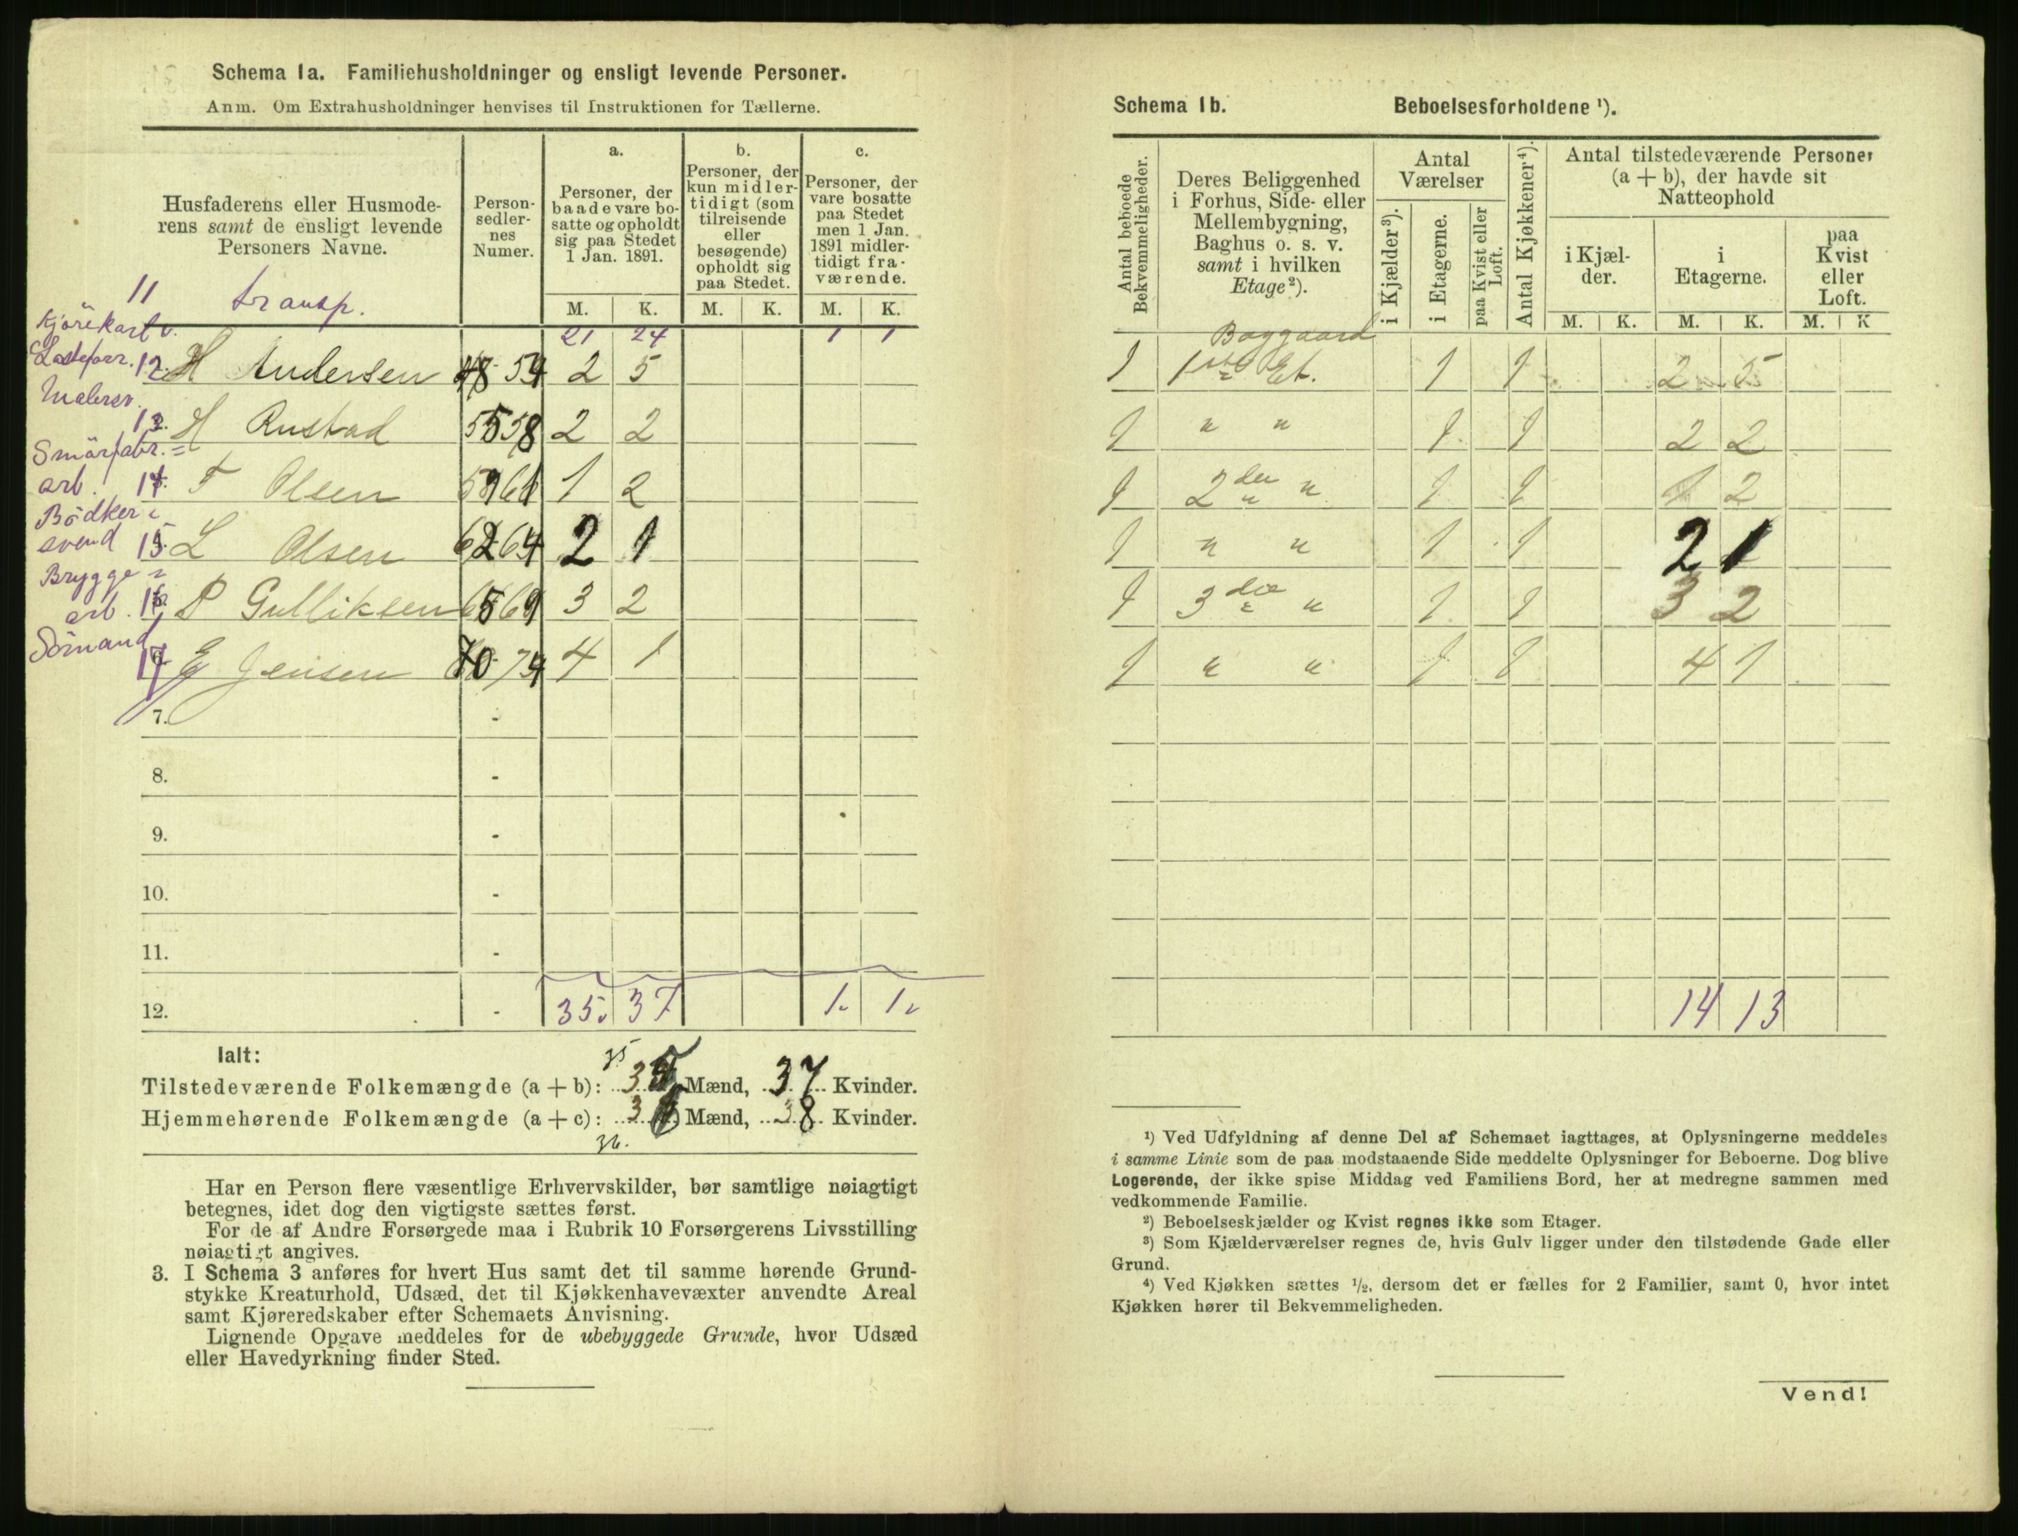 Schema 1a. Familiehusholdninger og ensligt levende Personer.
Anm. Om Extrahusholdninger henvises til Instruktionen for Tællerne.
Husfaderens eller Husmode-
rens samt de ensligt levende
Personers Navne.
Person-
sedler-
nes
Numer.
a.
Personer, der
baade vare bo-
satte og opholdt
sig paa Stedet
1 Jan. 1891.
b.
Personer, der
kun midler-
tidigt (som
tilreisende
eller
besøgende)
opholdt sig
paa Stedet.
c.
Personer, der
vare bosatte
paa Stedet
men 1 Jan.
1891 midler-
tidigt fra-
værende.
M. K. M. K. M. K.
11 transp. 21 24 1 1
Kjörekarl
12 H Andersen 48 54 2 5
Malersv.
13 H Rustad 55 58 2 2
Smörfabr.
arb. 14 T Olsen 59 61 1 2
Bödker
svend 15 L Olsen 62 64 2 1
Brygge
arb. 16 P Gulliksen 65 69 3 2
Sömand
17 E Jensen 70 - 74 4 1
7. -
8. -
9. -
10. -
11. -
12. - 35 37 1 1
Ialt:
35
Tilstedeværende Folkemængde (a + b): 35 Mænd, 37 Kvinder.
Hjemmehørende Folkemængde (a + c): 36 Mænd, 38 Kvinder.
36.
Har en Person flere væsentlige Erhvervskilder, bør samtlige nøiagtigt
betegnes, idet dog den vigtigste sættes først.
For de af Andre Forsørgede maa i Rubrik 10 Forsørgerens Livsstilling
nøiagtigt angives.
3. I Schema 3 anføres for hvert Hus samt det til samme hørende Grund-
stykke Kreaturhold, Udsæd, det til Kjøkkenhavevæxter anvendte Areal
samt Kjøreredskaber efter Schemaets Anvisning.
Lignende Opgave meddeles for de ubebyggede Grunde, hvor Udsæd
eller Havedyrkning finder Sted.
Schema 1b. Beboelsesforholdene ¹).
Antal beboede
Bekvemmeligheder.
Deres Beliggenhed
i Forhus, Side- eller
Mellembygning,
Baghus o. s. v.
samt i hvilken
Etage²).
Antal
Værelser
i Kjælder³).
i Etagerne.
paa Kvist eller
Loft.
Antal Kjøkkener⁴).
Antal tilstedeværende Personer
(a + b), der havde sit
Natteophold
i Kjæl-
der.
i
Etagerne.
paa
Kvist
eller
Loft.
M. K. M. K. M. K
Baggaard
1 1ste Et. 1 1 2 5
1 " " 1 1 2 2
1 2den " 1 1 1 2
1 " " 1 1 2 1
1 3die " 1 1 3 2
1 " " 1 1 4 1
14 13
¹) Ved Udfyldning af denne Del af Schemaet iagttages, at Oplysningerne meddeles
i samme Linie som de paa modstaaende Side meddelte Oplysninger for Beboerne. Dog blive
Logerende, der ikke spise Middag ved Familiens Bord, her at medregne sammen med
vedkommende Familie.
²) Beboelseskjælder og Kvist regnes ikke som Etager.
³) Som Kjælderværelser regnes de, hvis Gulv ligger under den tilstødende Gade eller
Grund.
⁴) Ved Kjøkken sættes ½, dersom det er fælles for 2 Familier, samt 0, hvor intet
Kjøkken hører til Bekvemmeligheden.
Vend!